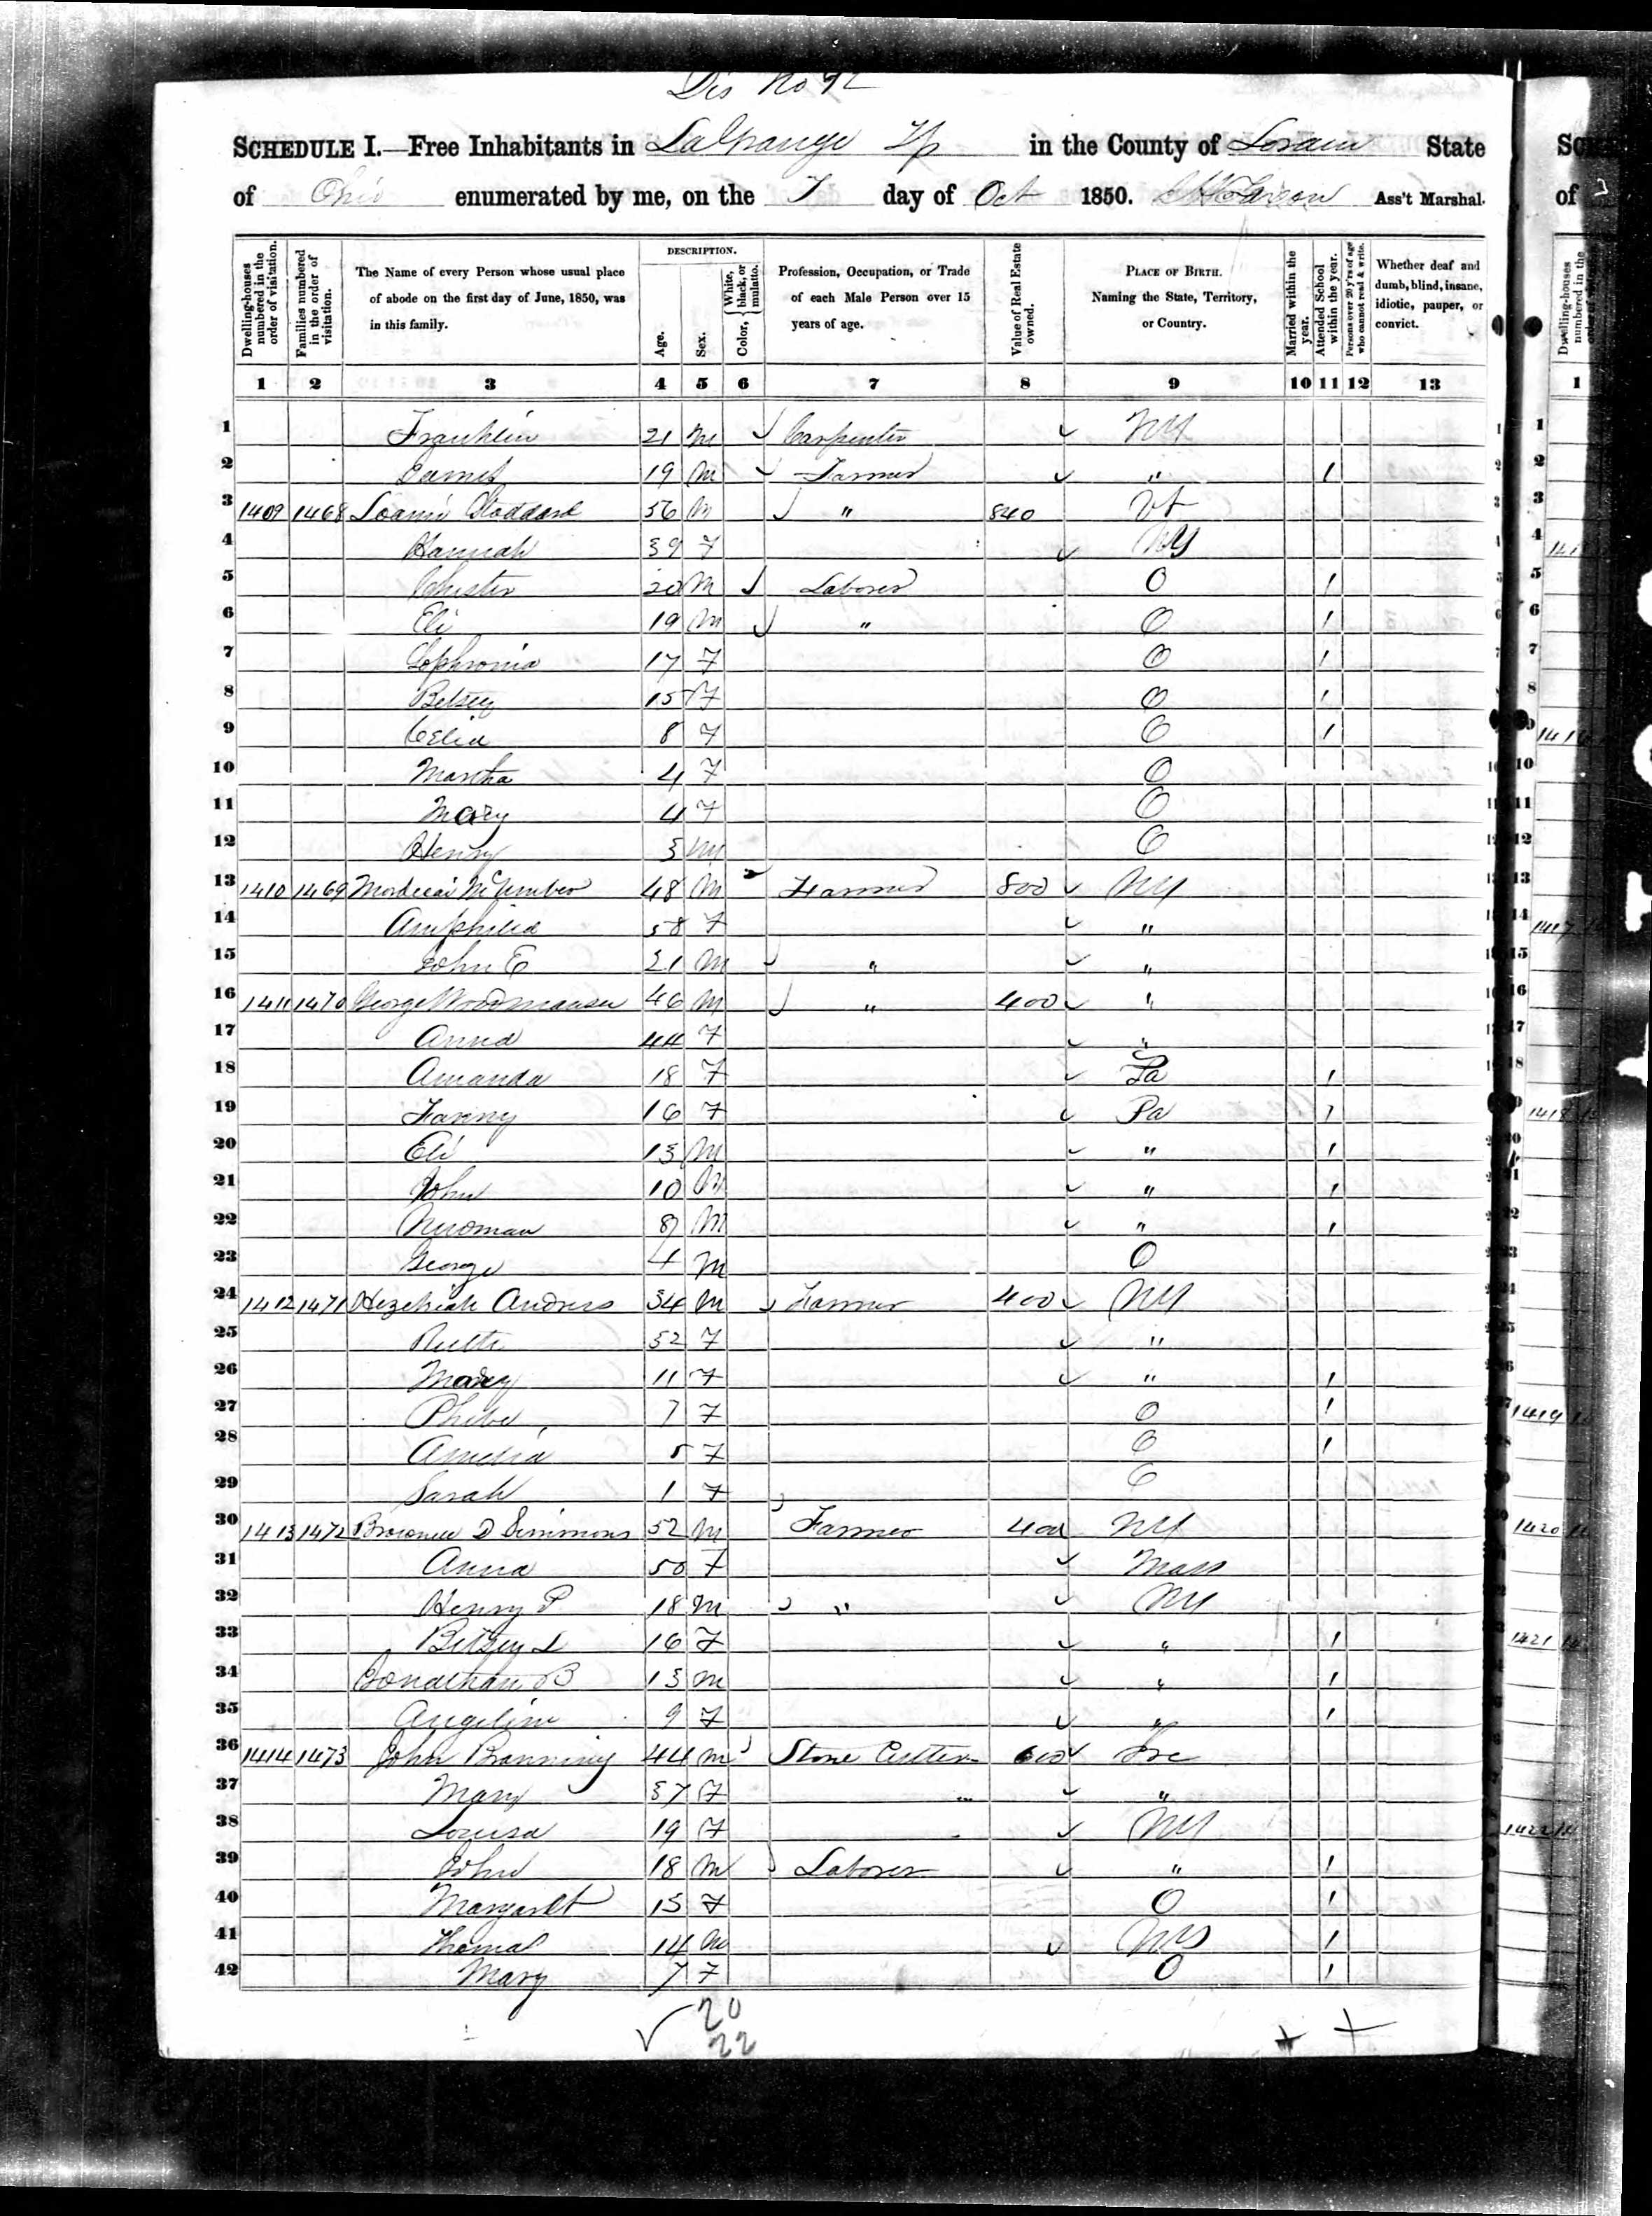 Dis No 92
SCHEDULE I.—Free Inhabitants in LaGrange Tp in the County of Lorain State
of Ohio enumerated by me, on the 7 day of Oct 1850. Ass't Marshal.
Dwelling-houses numbered in the order of visitation. Families numbered in the order of visitation. The Name of every Person whose usual place of abode on the first day of June, 1850, was in this family. DESCRIPTION. Age. Sex. Color, {White, black, or mulatto. Profession, Occupation, or Trade of each Male Person over 15 years of age. Value of Real Estate owned. PLACE OF BIRTH. Naming the State, Territory, or Country. Married within the year. Attended School within the year. Persons over 20 y'rs of age who cannot read & write. Whether deaf and dumb, blind, insane, idiotic, pauper, or convict.
1 2 3 4 5 6 7 8 9 10 11 12 13
1 Franklin 21 M Carpenter NY
2 James 19 M Farmer " 1
3 1409 1468 Loami Stoddard 56 M " 840 Vt
4 Hannah 39 F NY
5 Chester 20 M Laborer O 1
6 Eli 19 M " O 1
7 Sophronia 17 F O 1
8 Betsey 15 F O 1
9 Celia 8 F O 1
10 Martha 4 F O
11 Mary 4 F O
12 Henry 3 M O
13 1410 1469 Mordecai 48 M Farmer 800 NY
14 58 F "
15 John E 21 M " "
16 1411 1470 George Woodmansee 46 M " 400 "
17 Anna 44 F "
18 Amanda 18 F Pa 1
19 Fanny 16 F Pa 1
20 Eli 13 M " 1
21 John 10 M " 1
22 Nuoman 8 M " 1
23 George 4 M O
24 1412 1471 Hezekiah Andress 34 M Farmer 400 NY
25 Ruth 32 F "
26 Mary 11 F " 1
27 Phebe 7 F O 1
28 Amelia 5 F O 1
29 Sarah 1 F O
30 1413 1472 D Simmons 52 M Farmer 400 NY
31 Anna 50 F Mass
32 Henry P 18 M " NY
33 Betsey L 16 F " 1
34 Jonathan B 13 M " 1
35 Angeline 9 F " 1
36 1414 1473 John Branning 44 M Stone Cutter 600 Ire
37 Mary 37 F "
38 Louisa 19 F NY
39 John 18 M Laborer " 1
40 Margaret 15 F O 1
41 Thomas 14 M NY 1
42 Mary 7 F O 1
20
22